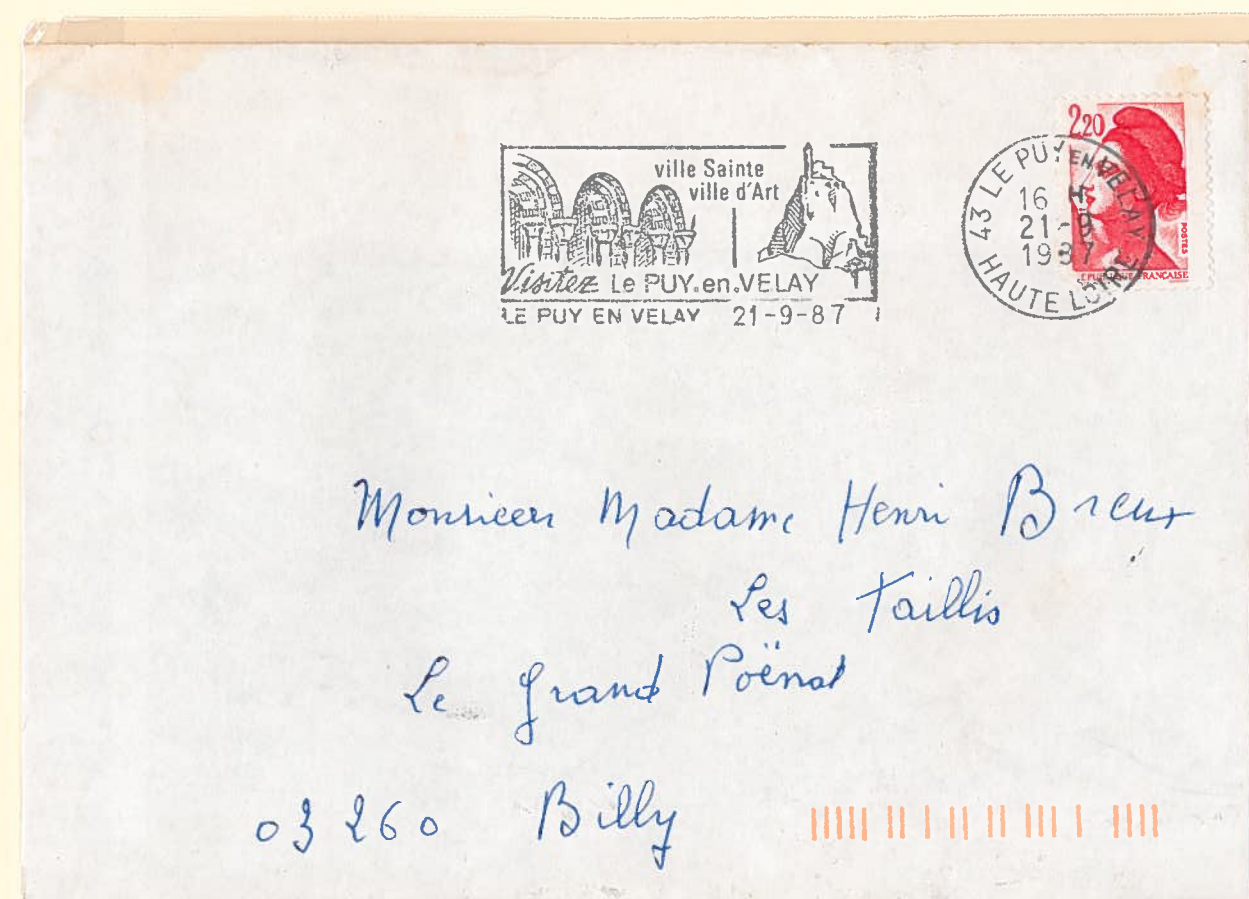 ville Sainte
ville d'Art
Visitez Le PUY.en.VELAY
LE PUY EN VELAY 21-9-87
2,20
43 LE PUY EN VELAY
16 H
21-9
1987
HAUTE LOIRE
POSTES
REPUBLIQUE FRANÇAISE
Monsieur Madame Henri Breux
Les Taillis
Le Grand Poënat
03260 Billy